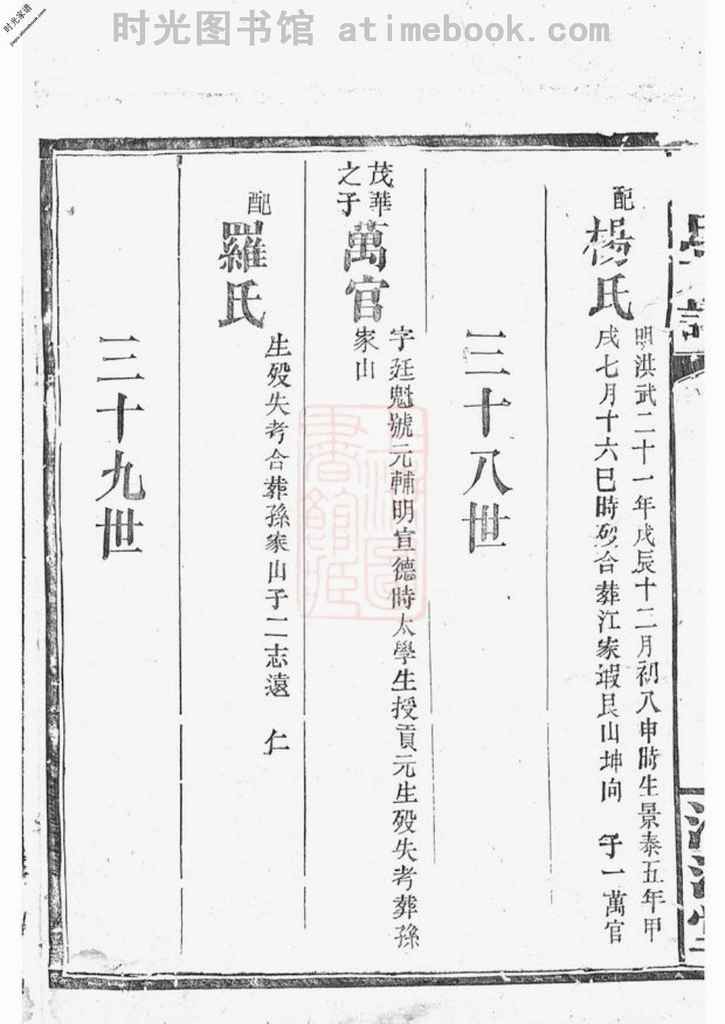 时光图书馆 atimebook.com
时光家谱
配
楊氏
明洪武二十一年戊辰十二月初八申時生景泰五年甲
戌七月十六巳時歿合葬江家塅艮山坤向 子一萬官
三十八世
茂華
之子
萬官
字廷魁號元輔明宣德時太學生授貢元生歿失考葬孫
家山
配
羅氏
生歿失考合葬孫家山子二志遠 仁
三十九世